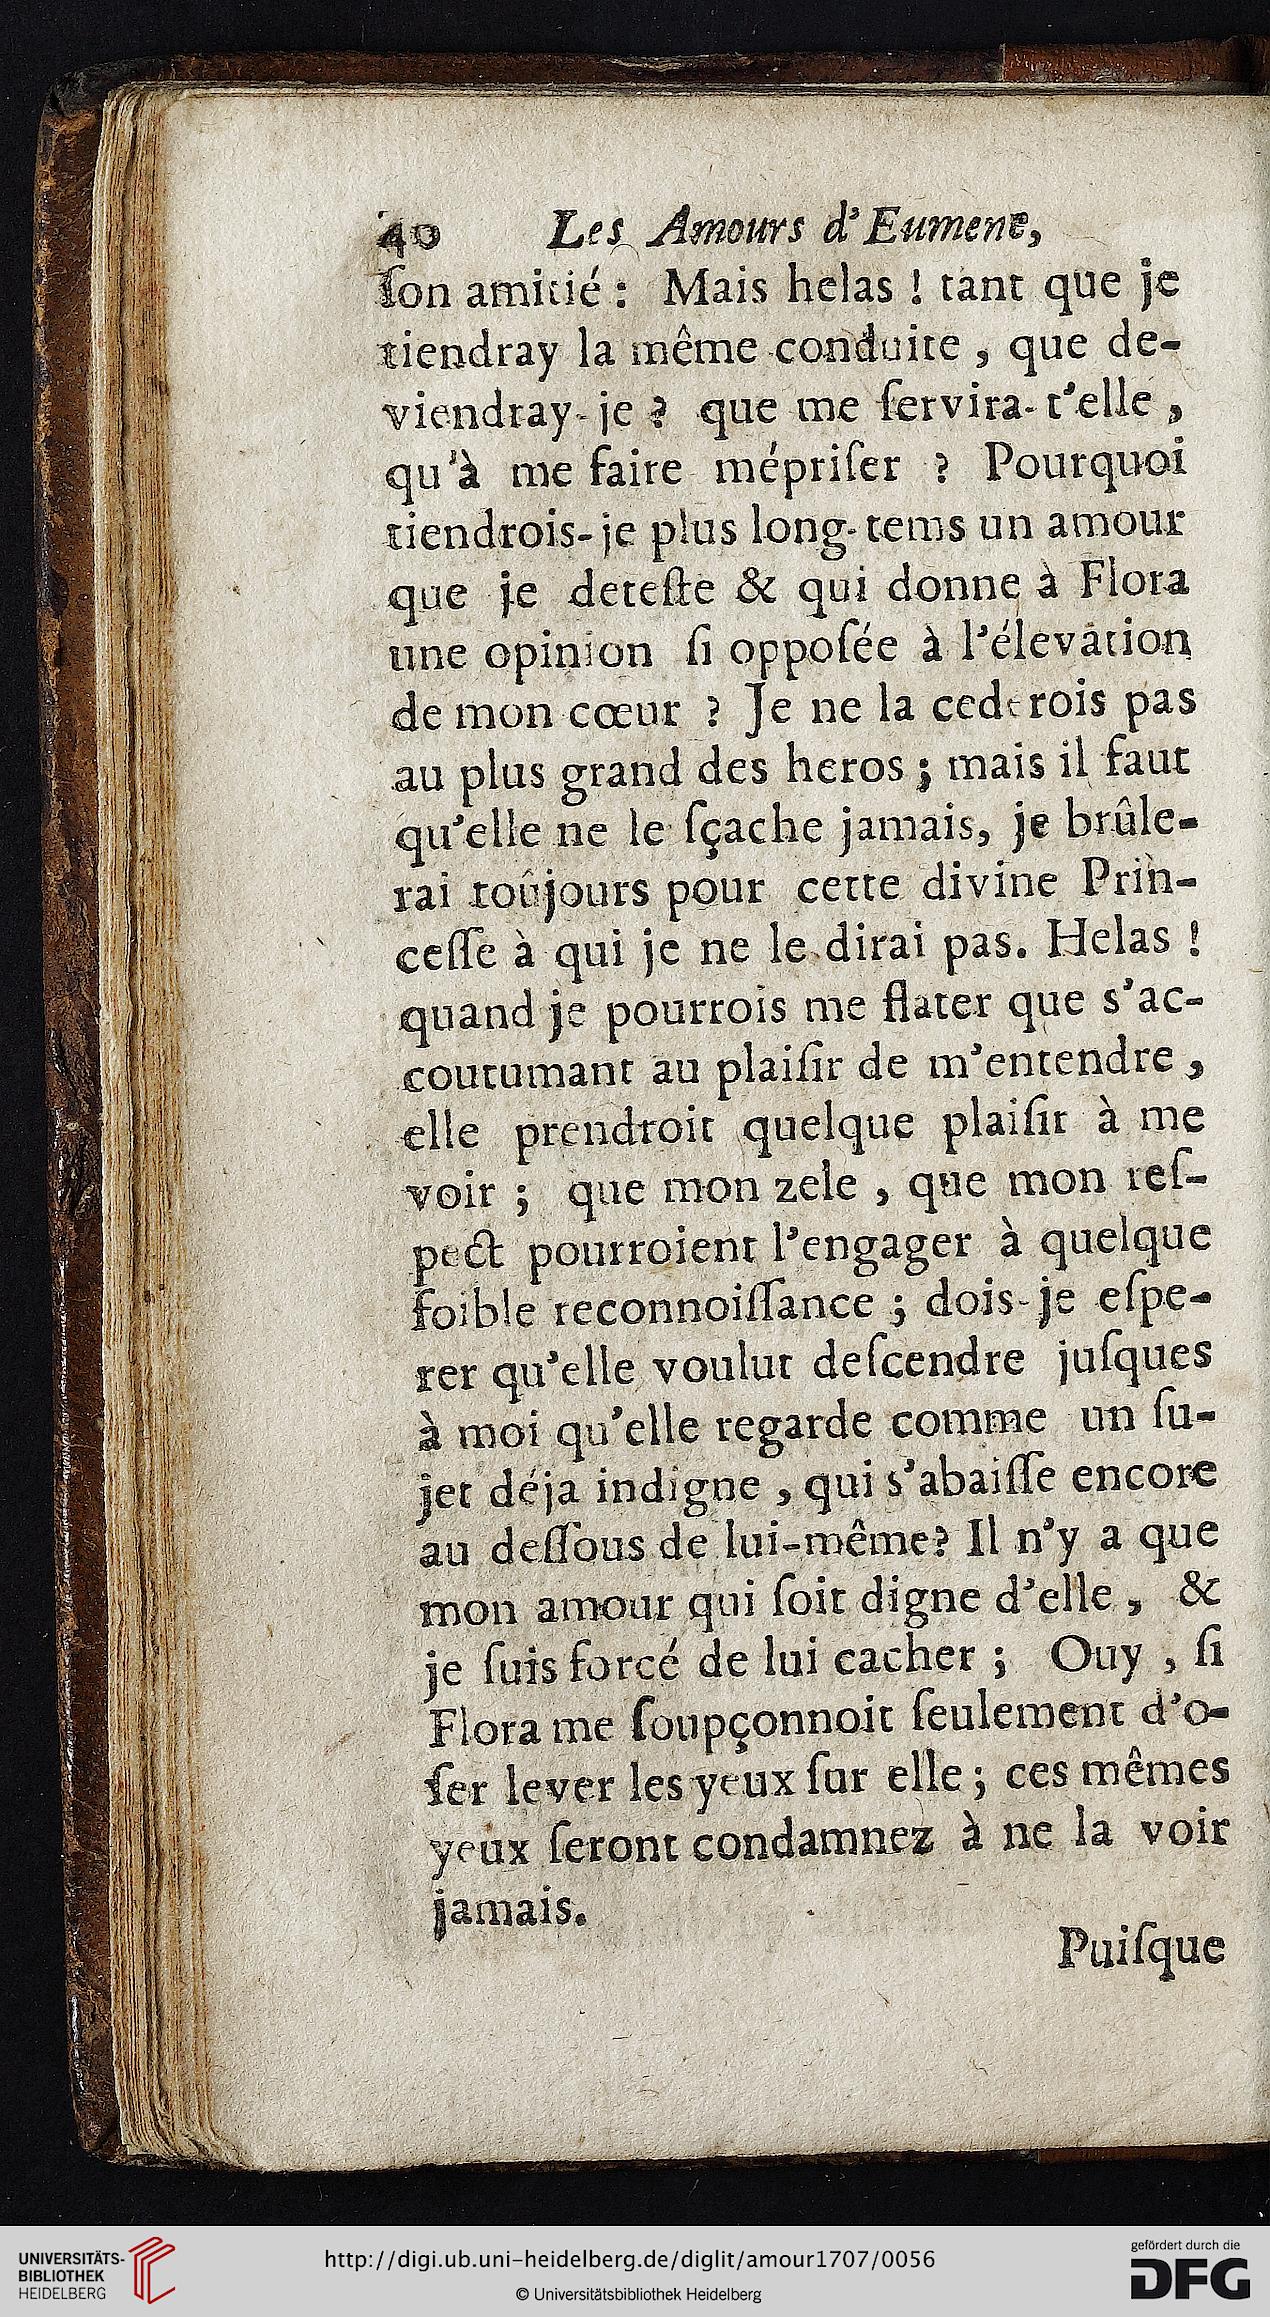 40 Les Amours d'Eumene,
ſon amitié : Mais helas ! tant que je
tiendray la même conduite , que de-
viendray-je ? que me ſervira-t'elle ,
qu'à me faire mépriſer ? Pourquoi
tiendrois-je plus long-tems un amour
que je deteſte & qui donne à Flora
une opinion ſi oppoſée à l'élevation
de mon cœur ? Je ne la cederois pas
au plus grand des heros ; mais il faut
qu'elle ne le ſçache jamais, je brûle-
rai toûjours pour cette divine Prin-
ceſſe à qui je ne le dirai pas. Helas !
quand je pourrois me flater que s'ac-
coutumant au plaiſir de m'entendre ,
elle prendroit quelque plaiſir à me
voir ; que mon zele , que mon reſ-
pect pourroient l'engager à quelque
foible reconnoiſſance ; dois-je eſpe-
rer qu'elle voulut deſcendre juſques
à moi qu'elle regarde comme un ſu-
jet déja indigne , qui s'abaiſſe encore
au deſſous de lui-même? Il n'y a que
mon amour qui ſoit digne d'elle , &
je ſuis forcé de lui cacher ; Ouy , ſi
Flora me ſoupçonnoit ſeulement d'o-
ſer lever les yeux ſur elle ; ces mêmes
yeux ſeront condamnez à ne la voir
jamais.
Puiſque
UNIVERSITÄTS-
BIBLIOTHEK
HEIDELBERG
http://digi.ub.uni-heidelberg.de/diglit/amour1707/0056
© Universitätsbibliothek Heidelberg
gefördert durch die
DFG